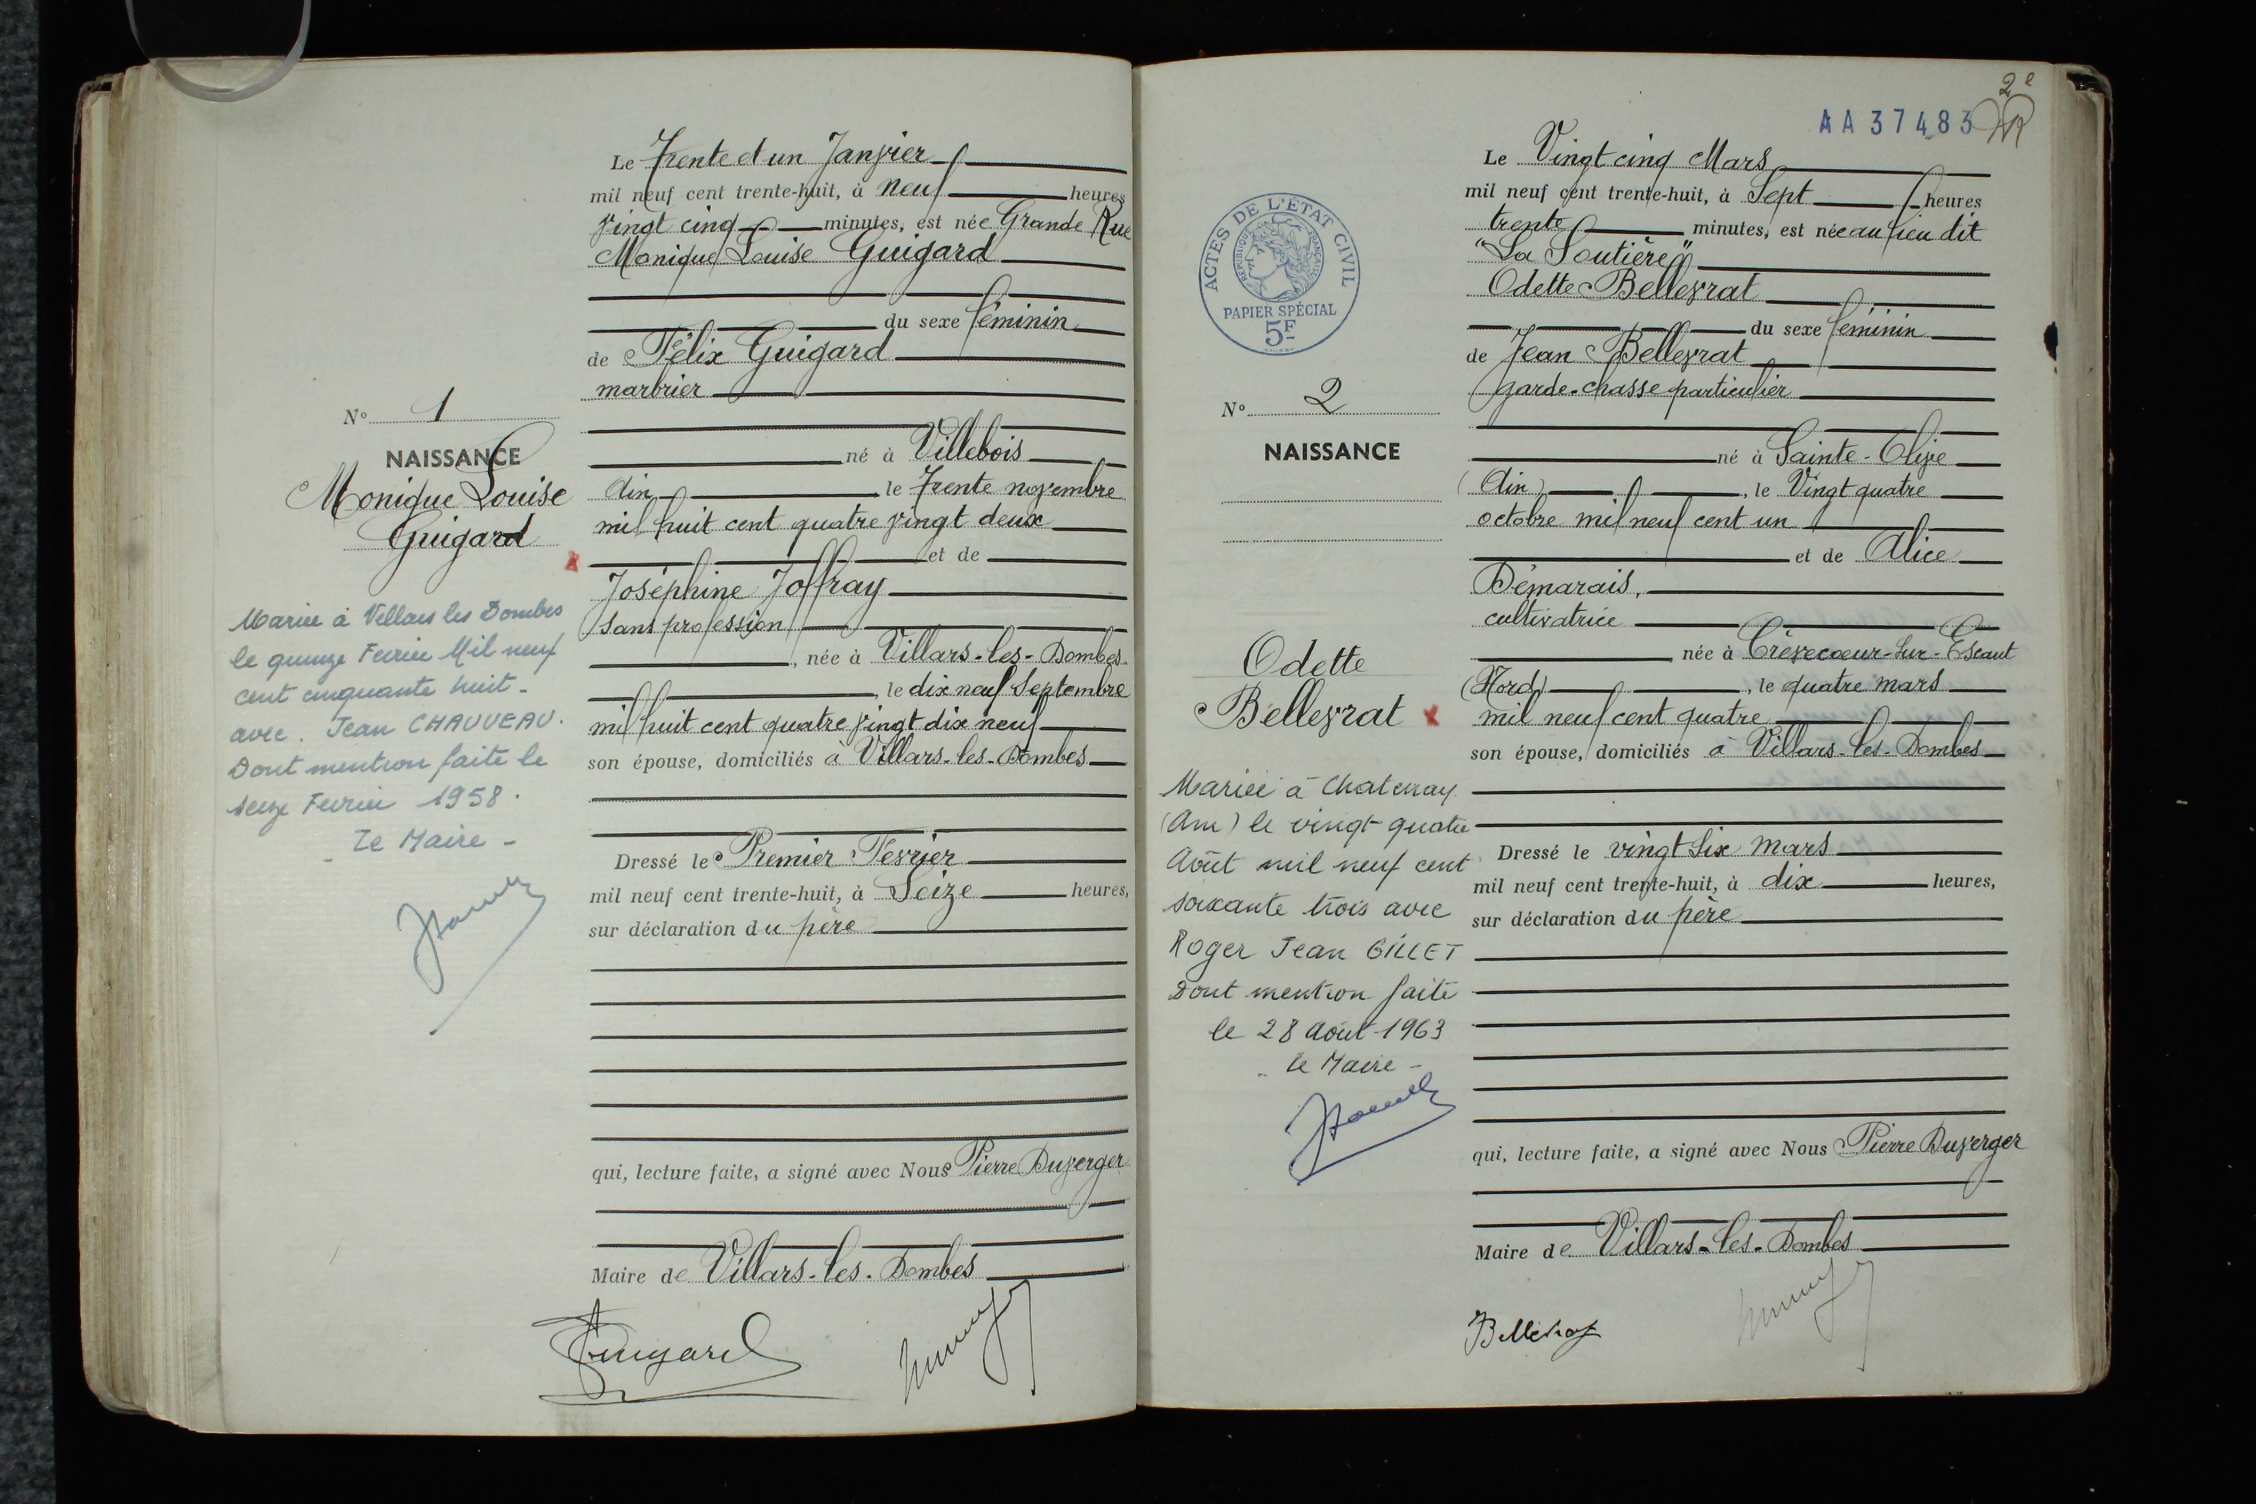 Le Trente et un Janvier
mil neuf cent trente-huit, à neuf heures
vingt cinq minutes, est née Grande Rue
Monique Louise Guigard
du sexe féminin
de Félix Guigard
marbrier
né à Villebois
Ain le Trente novembre
mil huit cent quatre vingt deux
et de
Joséphine Joffray
sans profession
, née à Villars-les-Dombes
, le dix neuf Septembre
mil huit cent quatre vingt dix neuf
son épouse, domiciliés à Villars-les-Dombes
Dressé le Premier Février
mil neuf cent trente-huit, à Seize heures,
sur déclaration du père
qui, lecture faite, a signé avec Nous Pierre Duverger
Maire de Villars-les-Dombes
Guigard
N° 1
NAISSANCE
Monique Louise
Guigard
Mariée à Villars les Dombes
le quinze Fevrier Mil neuf
cent cinquante huit -
avec. Jean CHAUVEAU.
Dont mention faite le
seize Fevrier 1958.
- Le Maire -
2e
AA37483
ACTES DE L'ÉTAT CIVIL
RÉPUBLIQUE FRANÇAISE
PAPIER SPÉCIAL
5F
N° 2
NAISSANCE
Odette
Belleyrat
Mariée à Chatenay
(Ain) le vingt quatre
Août mil neuf cent
soixante trois avec
Roger Jean GILLET
Dont mention faite
le 28 Août 1963
- Le Maire -
Le Vingt cinq Mars
mil neuf cent trente-huit, à Sept heures
trente minutes, est née au lieu dit
"La Soutière"
Odette Belleyrat
du sexe féminin
de Jean Belleyrat
garde-chasse particulier
né à Sainte-Olive
(Ain), le Vingt quatre
octobre mil neuf cent un
et de Alice
Démarais,
cultivatrice
née à Crèvecoeur-sur-Escaut
(Nord), le quatre mars
mil neuf cent quatre
son épouse, domiciliés à Villars-les-Dombes
Dressé le vingt six mars
mil neuf cent trente-huit, à dix heures,
sur déclaration du père
qui, lecture faite, a signé avec Nous Pierre Duverger
Maire de Villars-les-Dombes